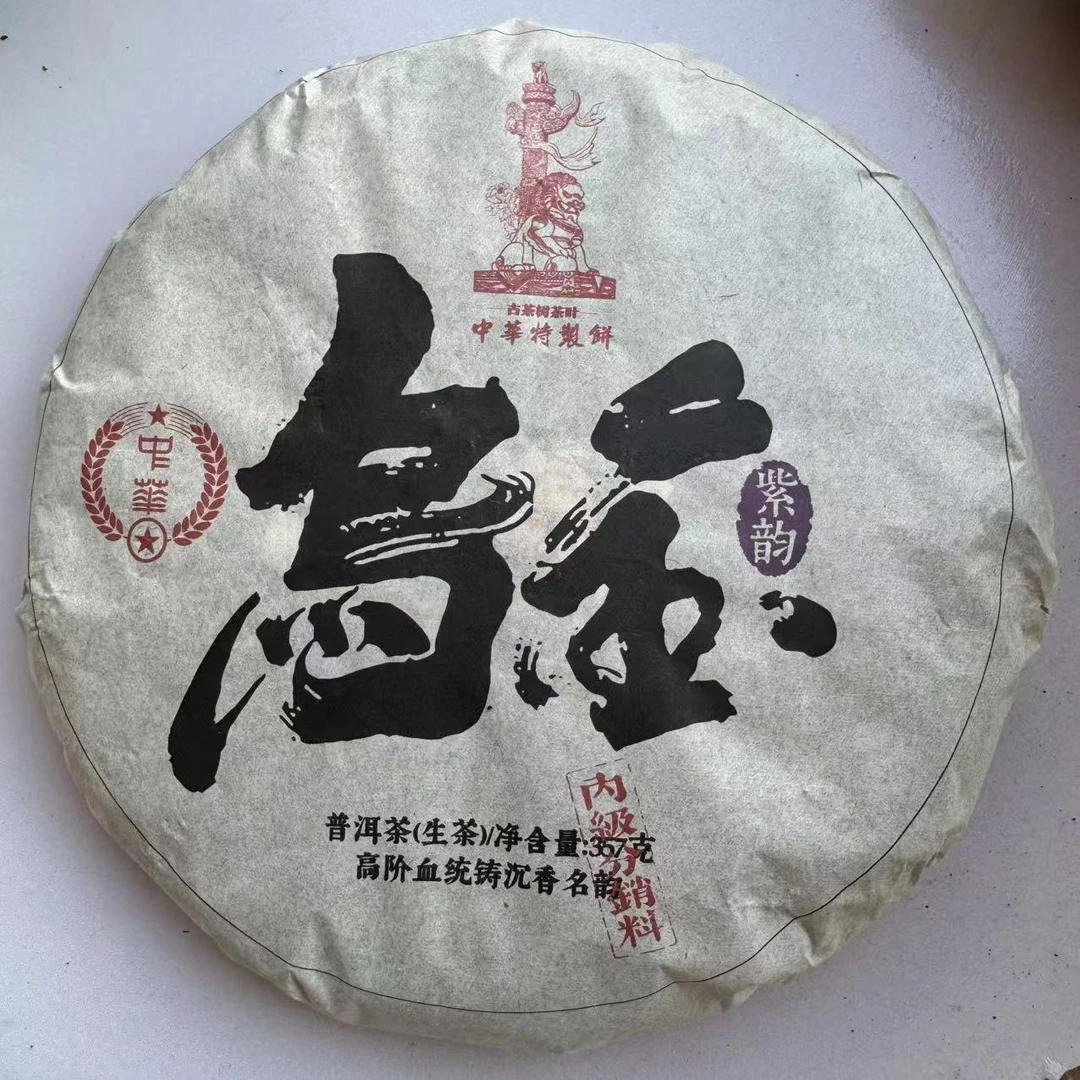 古茶树茶叶
中華特製餅
中華
烏金
紫韵
普洱茶(生茶)/净含量:357克
高阶血统铸沉香名韵
内級分銷料